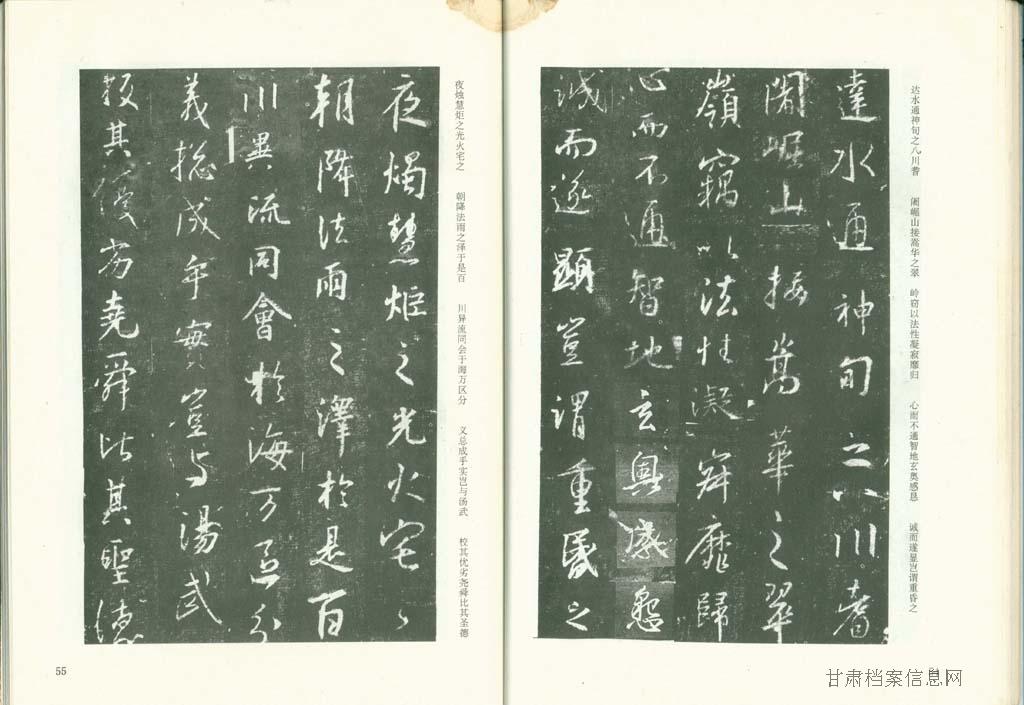 达水通神甸之八川耆　阇崛山接嵩华之翠　岭窃以法性凝寂靡归　心而不通智地玄奥感恳　诚而遂显岂谓重昏之
達水通神甸之八川耆
闍崛山接嵩華之翠
嶺竊以法性凝寂靡歸
心而不通智地玄奧感懇
誠而遂顯豈謂重昏之
夜烛慧炬之光火宅之　朝降法雨之泽于是百　川异流同会于海万区分　义总成乎实岂与汤武　校其优劣尧舜比其圣德
夜燭慧炬之光火宅之
朝降法雨之澤於是百
川異流同會於海万區分
義揔成乎實豈与湯武
挍其優劣堯舜比其聖德
55
甘肃档案信息网